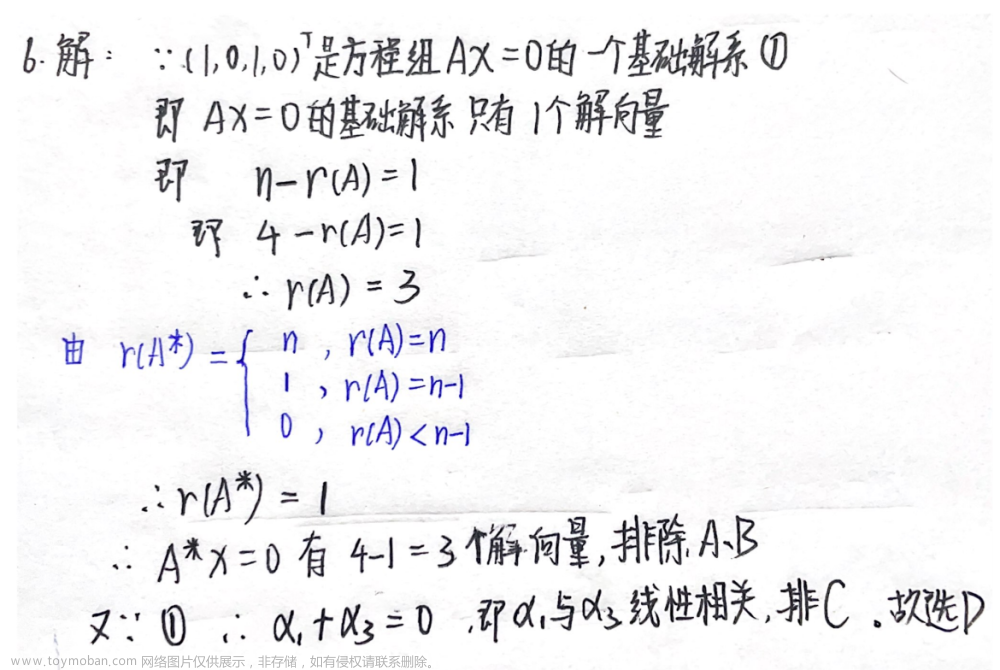 6. 解： ∵(1,0,1,0)ᵀ是方程组AX=0的一个基础解系①
即 AX=0的基础解系只有1个解向量
即 n-r(A)=1
即 4-r(A)=1
∴ r(A)=3
由 r(A*)={ n , r(A)=n
1 , r(A)=n-1
0 , r(A)<n-1
∴r(A*)=1
∴ A*X=0 有 4-1=3个解向量,排除A、B
又∵ ① ∴ α₁+α₃=0 ,即α₁与α₃线性相关,排C。故选D
www.toymoban.com 网络图片仅供展示，非存储，如有侵权请联系删除。